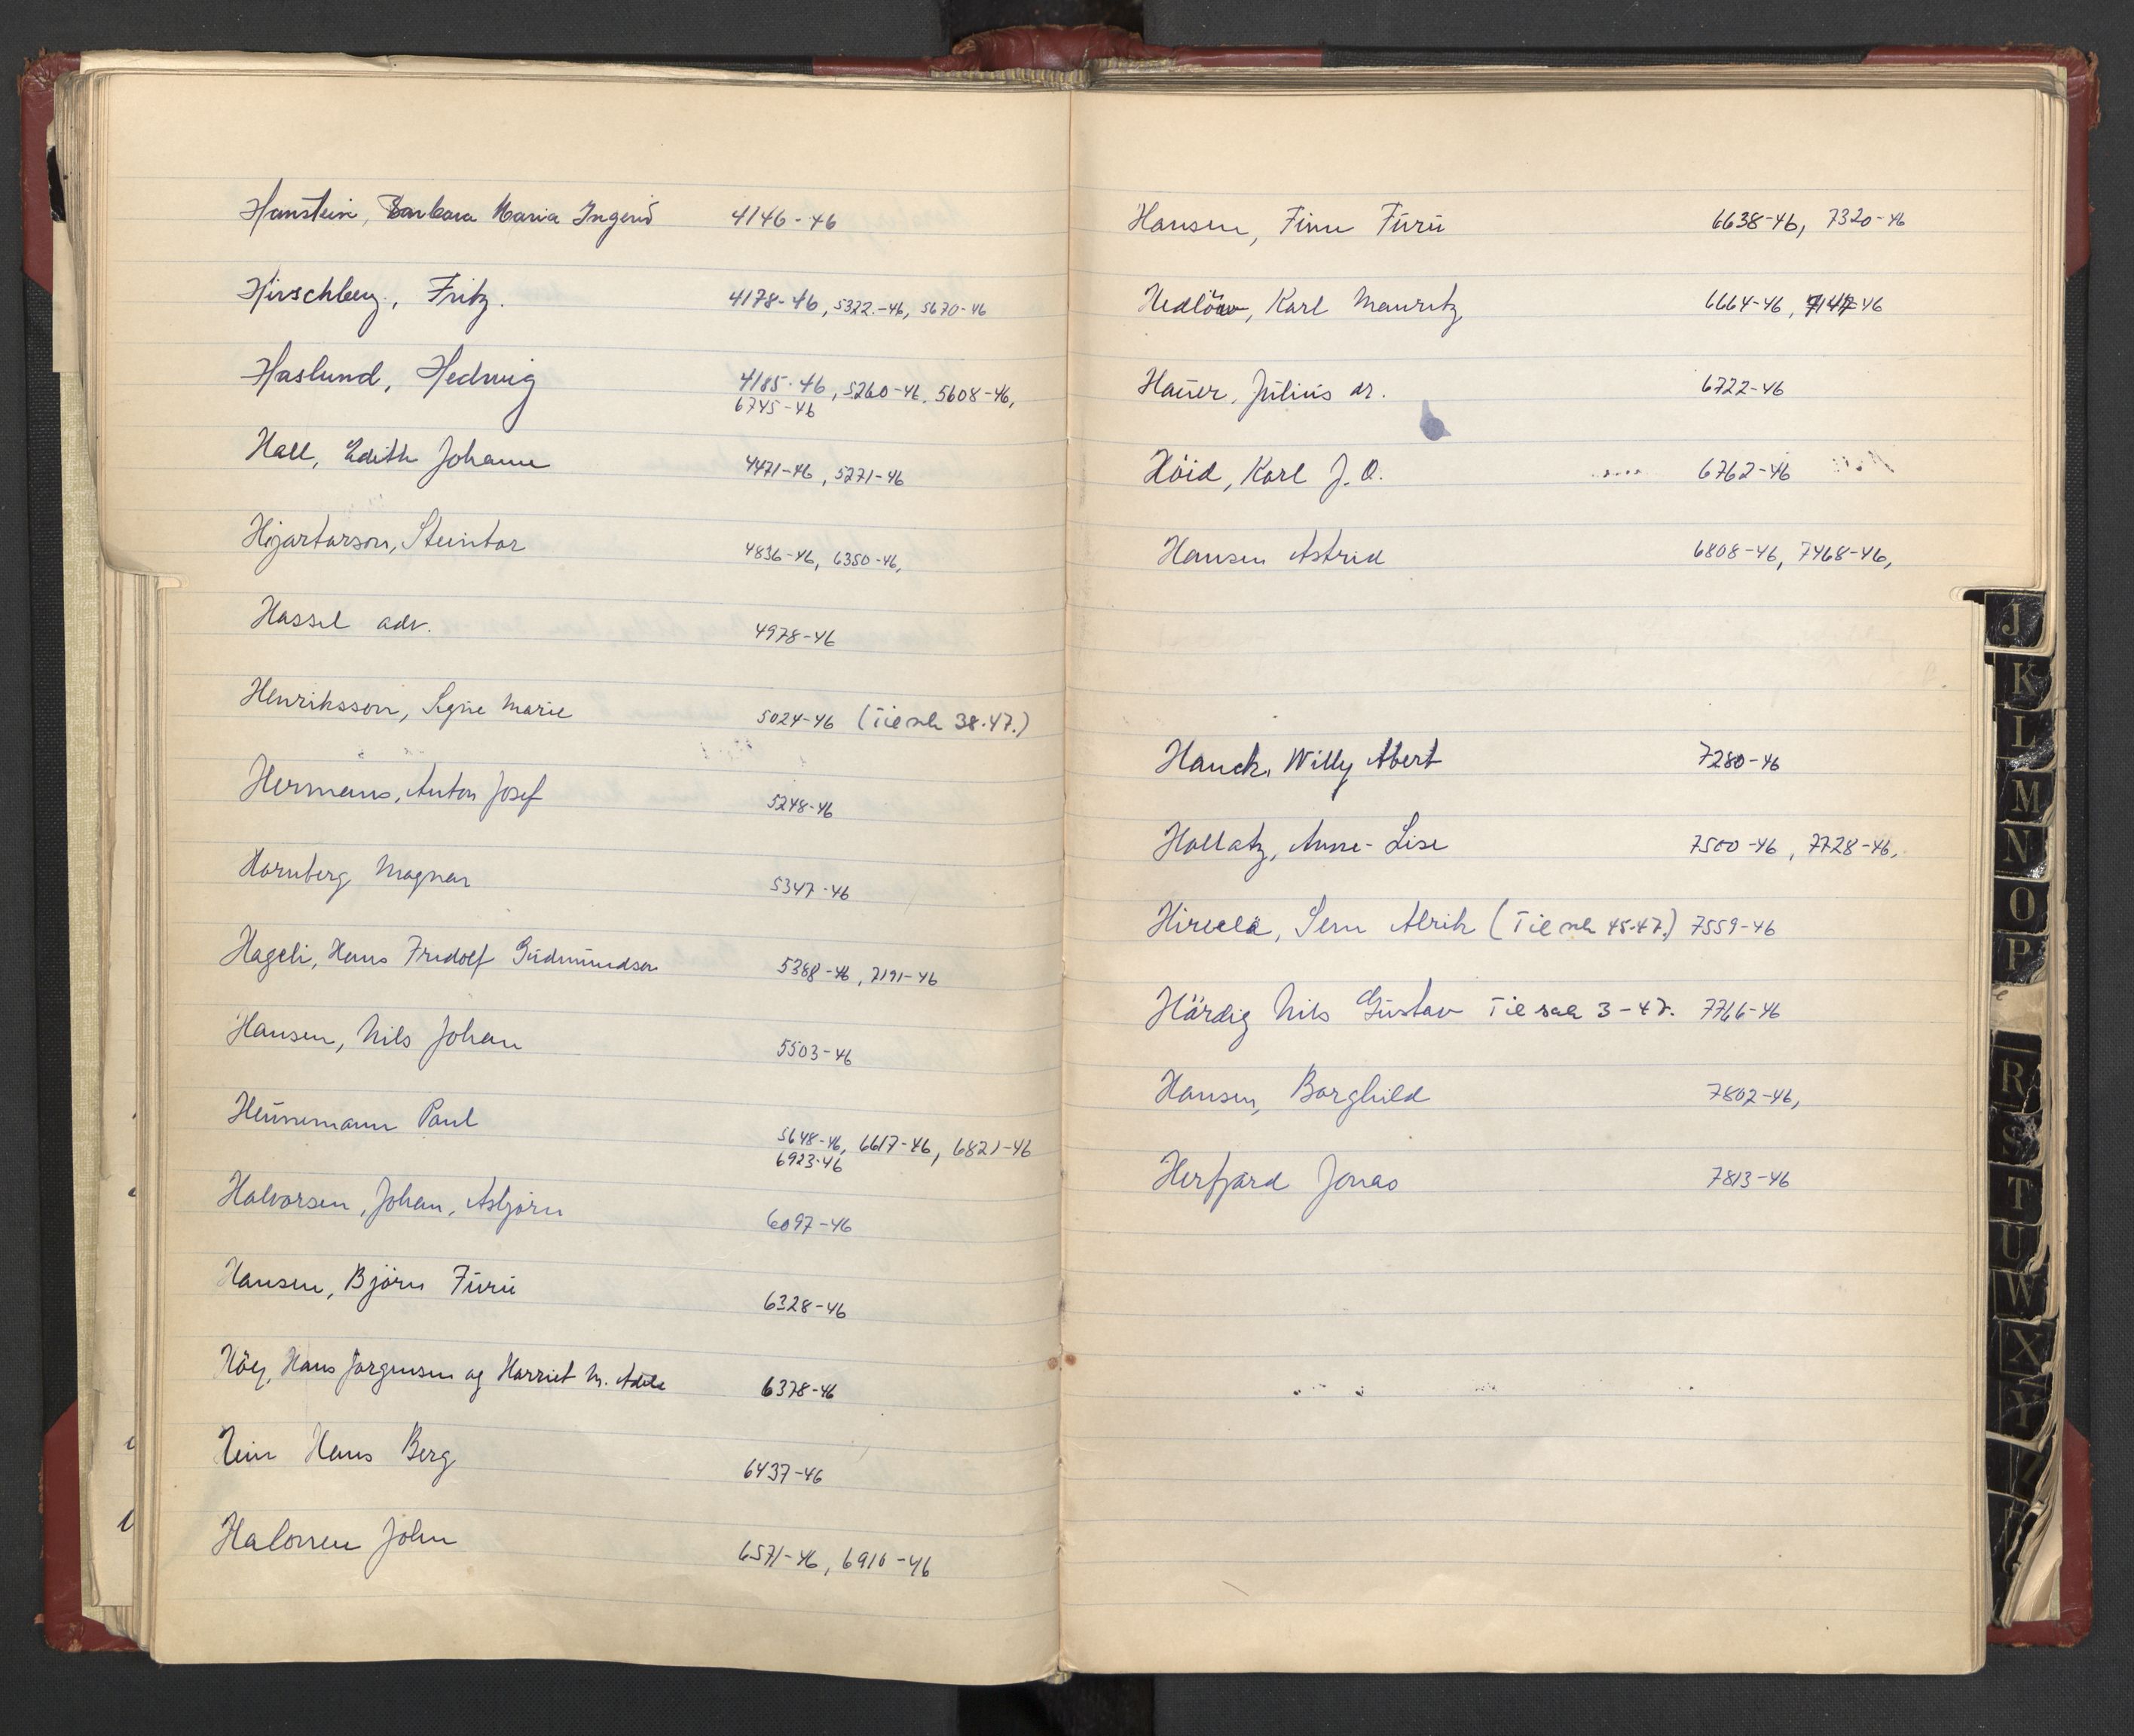 Hanstein, Barbara Maria Ingerid 4146-46
Hirschberg, Fritz. 4178-46, 5322.-46, 5670-46
Haslund, Hedwig 4185-46, 5260-46, 5608-46,
6745-46
Hall, Edith Johanne 4471-46, 5271-46
Hjartarson, Steintor 4836-46, 6350-46,
Hassel adv. 4978-46
Henriksson, Signe Marie 5024-46 (Til sak 38.47.)
Hermans, Anton Josef 5248-46
Hornberg Magnar 5347-46
Hageli, Hans Fridolf Gudmundsen 5388-46, 7191-46
Hansen, Nils Johan 5503-46
Heunemann Paul 5648-46, 6617-46, 6821-46
6923-46
Halvorsen, Johan, Asbjørn 6097-46
Hansen, Björn Furu 6328-46
Höeg, Hans Jørgensen og Harriet M. Adele 6378-46
Hein Hans Berg 6437-46
Halonen John 6571-46, 6910-46
Hansen, Finn Furu 6638-46, 7320-46
Hedlöw, Karl Mauritz 6664-46, 7147-46
Hauer, Julius dr. 6722-46
Höid, Karl J. O. 6762-46
Hansen Astrid 6808-46, 7468-46,
Hauck, Willy Albert 7280-46
Hollatz, Anne-Lise 7500-46, 7728-46,
Hirvelä, Sem Alrik (Til sak 45.47.) 7559-46
Härdig Nils Gustav Til sak 3-47. 7766-46
Hansen, Borghild 7802-46,
Herfjord Jonas 7813-46
J
K
L
M
N
O
P
R
S
T
U
W
X
Y
Z